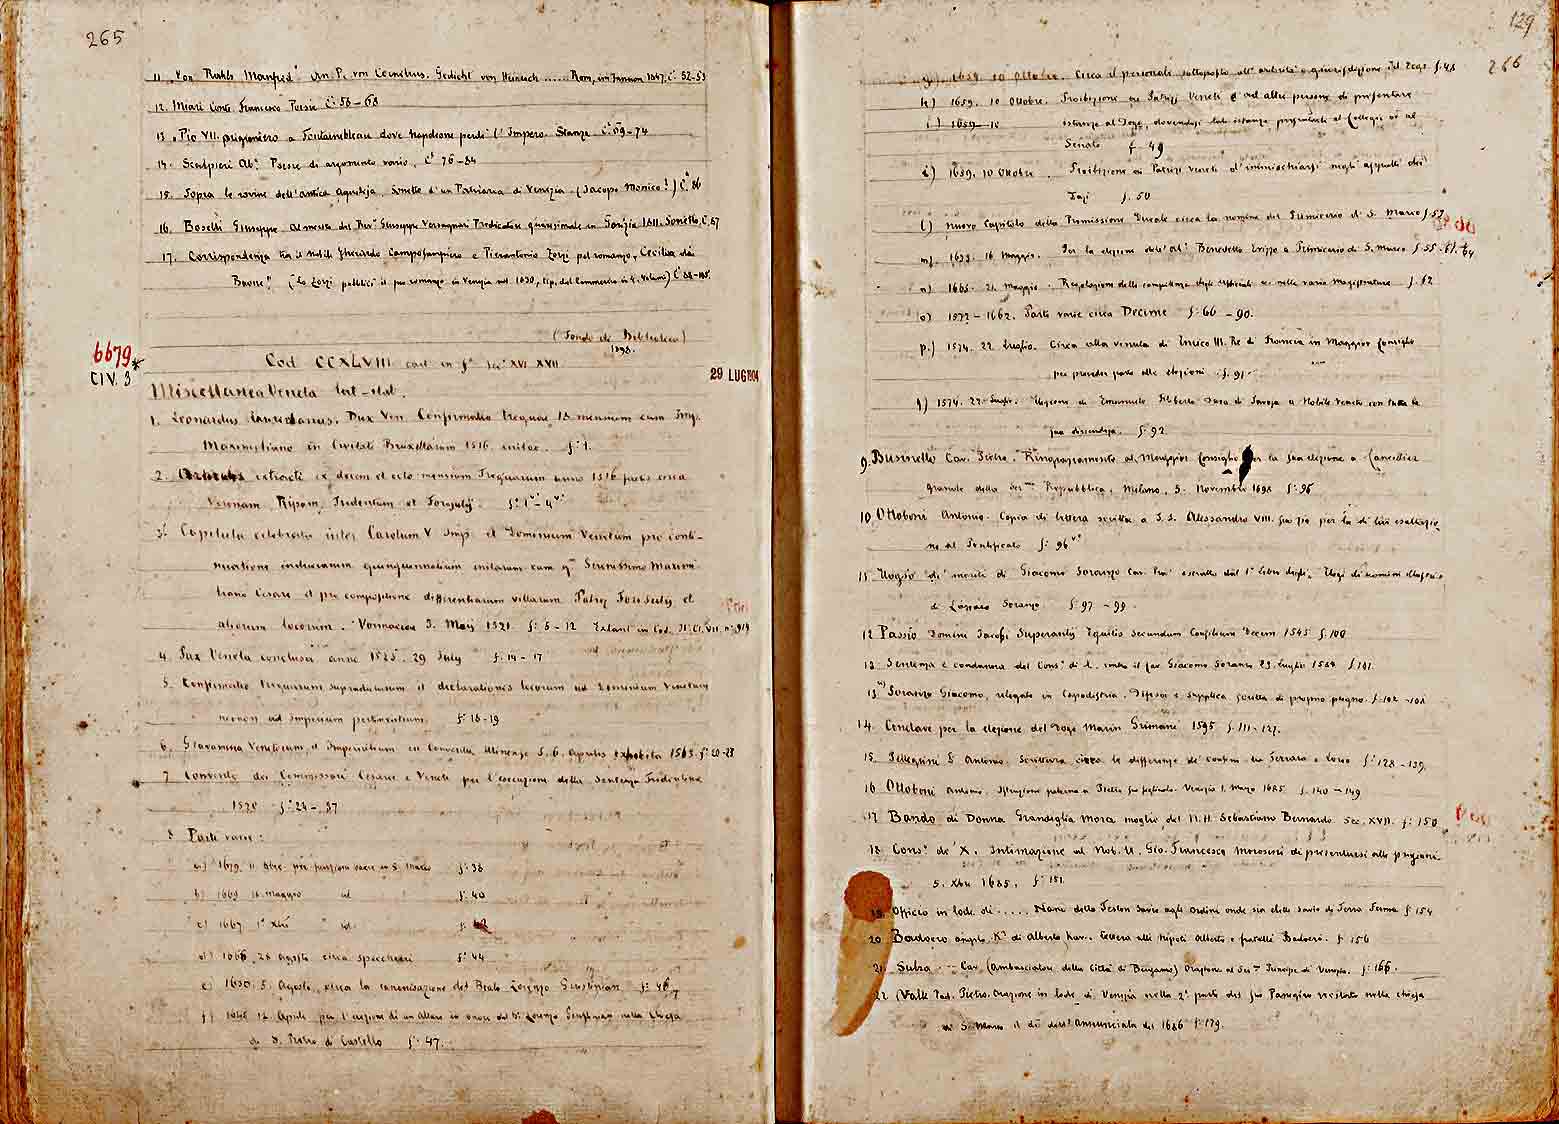 265
11. "Von Ruhls Manfred" An P. von Cornelius. Gedicht von Heinrich ...... Rom, im Januar 1847, C. 52-53
12. Miari Conte Francesco Poesie C. 56-68
13. "Pio VII. prigioniero a Fontainebleau dove Napoleone perdè l'Impero. Stanze C. 69-74
14. Scolpieri Ab. Poesie di argomento vario, C. 76-84
15. Sopra le rovine dell'antica Aquileja. Sonetto d'un Patriarca di Venezia. (Jacopo Monico?) C. 86
16. Boselli Giuseppe. Al merito del Rev. Giuseppe Predicatore quaresimale in Gorizia 1811. Sonetto, C. 87
17. Corrispondenza tra il nobile Gherardo Camposampiero e Pierantonio Zorzi pel romanzo "Cecilia di
Baone" (Lo Zorzi pubblicò il suo romanzo in Venezia nel 1830, tip. del Commercio in 4. Volumi) C. 88-105.
(Fondo de Biblioteca)
1898.
6679*
CIV. 3
Cod CCXLVIII cart. in f. sec. XVI XVII
29 LUG 1904
Miscellanea Veneta lat-ital.
1. Leonardus Lauredanus. Dux Ven. Confirmatio treguae 18 mensium cum Imp.
Maximiliano in Civitat. Bruxellarum 1516 initae. f. 1.
2. extracti ex decem et octo mensium Treguarum anno 1516 factis circa
Veronam Ripam, Tridentum et Forojulij. f. 1 - 4
3. Capitula celebrata inter Carolum V Imp. et Dominium Venetum pro conti-
nuatione induciarum quinquennalium initarum cum q. Serenissimo Maximi-
liano Cesare et pro compositione differentiarum villarum Patriae Forijulij et
aliorum locorum. Vormaciae 3. Maij 1521. f. 5-12 Extant in Cod. It. Cl. VII n. 919
4. Pax Veneta conclusa anno 1523. 29 July f. 14-17
5. Confirmatio treguarum supradictarum et declarationes locorum ad Dominium Venetum
necnon ad Imperium pertinentium. f. 18-19
6. Gravamina Venetorum et Imperialium in Conventu 5. 6. Aprilis exhibita 1563. f. 20-23
7. Convento dei Commissari Cesarei e Veneti per l'esecuzione della Sentenza Tridentina
1570 f. 24-37
8. Parti varie:
a) 1679. 11 Xbre. per funzioni sacre in S. Marco f. 38
b) 1669 16 maggio id f. 40
c) 1667. 1° Xbre id. f. 42
d) 1668, 28 Agosto circa specchieri f. 44
e) 1630. 5. Agosto, circa la canonizazione del Beato Lorenzo Giustinian. f. 46
f) 1648 12 Aprile per l'erezione di un altare in onore del B. Lorenzo Giustinian nella chiesa
di S. Pietro di Castello f. 47.
129
266
g) 1659. 10 Ottobre. Circa il personale sottoposto all'autorità e giurisdizione del Doge f. 48
h) 1659. 10 Ottobre. Proibizione ai Patrizi Veneti e ad altre persone di presentare
i) 1659-10 istanze al Doge, dovendosi tali istanze presentarsi al Collegio od al
Senato f. 49
i) 1659. 10 Ottobre. Proibizione ai Patrizi veneti d'immischiarsi negli appalti dei
Dazi f. 50
l) Nuovo Capitolo della Promissione Ducale circa la nomina del Primicerio di S. Marco f. 52
m) 1653. 16 Maggio. Per la elezione dell'Ab. Benedetto Erizzo a Primicerio di S. Marco f. 55. 61. 64
n) 1665. 21 Maggio. Regolazione delle competenze degli Ufficiali ec. nelle varie Magistrature f. 62
o) 1572-1662. Parti varie circa Decime f. 66-90.
p) 1574. 22. Luglio. Circa alla venuta di Enrico III. Re di Francia in Maggior Consiglio
per prender parte alle elezioni. f. 91.
q) 1574. 27. Luglio. Elezione di Emanuele Filiberto Duca di Savoja a Nobile veneto con tutta la
sua discendenza. f. 92
9. Businello Cav. Pietro. Ringraziamento al Maggior Consiglio per la sua elezione a Cancellier
grande della Ser. Repubblica, Milano, 5. Novembre 1698 f. 96
10. Ottoboni Antonio. Copia di lettera scritta a S.S. Alessandro VIII. suo zio per la di lui esaltazio
ne al Pontificato f. 96
11. Elogio de' meriti di Giacomo Soranzo Cav. Pro. estratto dal 1° libro degli Elogi di uomini illustri
di Lorenzo Soranzo f. 97-99.
12. Passio Domini Jacobi Superantij Equitis secundum Consilium Decem 1545 f. 100
13. Sentenza e condanna del Cons. di X. contro il sud. Giacomo Soranzo 23. Luglio 1584 f. 101.
13. Soranzo Giacomo, relegato in Capodistria. Difesa e supplica scritta di proprio pugno. f. 102-108
14. Conclave per la elezione del Doge Marin Grimani 1595 f. 111-127.
15. Pellegrini D. Antonio. Scrittura circa le differenze de' confini tra Ferrara e Loreo f. 128-139.
16. Ottoboni Antonio. Istruzione paterna a Pietro suo figliuolo. Venezia 1. Marzo 1685 f. 140-149
17. Bando di Donna Grandiglia Mora moglie del N.H. Sebastiano Bernardo. Sec. XVII. f. 150
18. Cons. de' X. Intimazione al Nob. U. Gio. Francesco Morosini di presentarsi alle prigioni
5. Xbre 1685. f. 151.
19. Officio in lode di ..... Nani detto Teston Savio agli Ordini onde sia eletto Savio di Terra Ferma f. 154
20. Badoero Angelo K. di Alberto Kav. Lettera alli Nipoti Alberto e fratelli Badoero. f. 156
21. Suba - Cav. (Ambasciatore della Città di Bergamo) Orazione al Ser. Principe di Venezia. f. 166.
22. (Valle Pad. Pietro. Orazione in lode di Venezia nella 2ª parte del suo Panegirico recitato nella chiesa
di S. Marco il dì dell'Annunciata del 1686 f. 179.